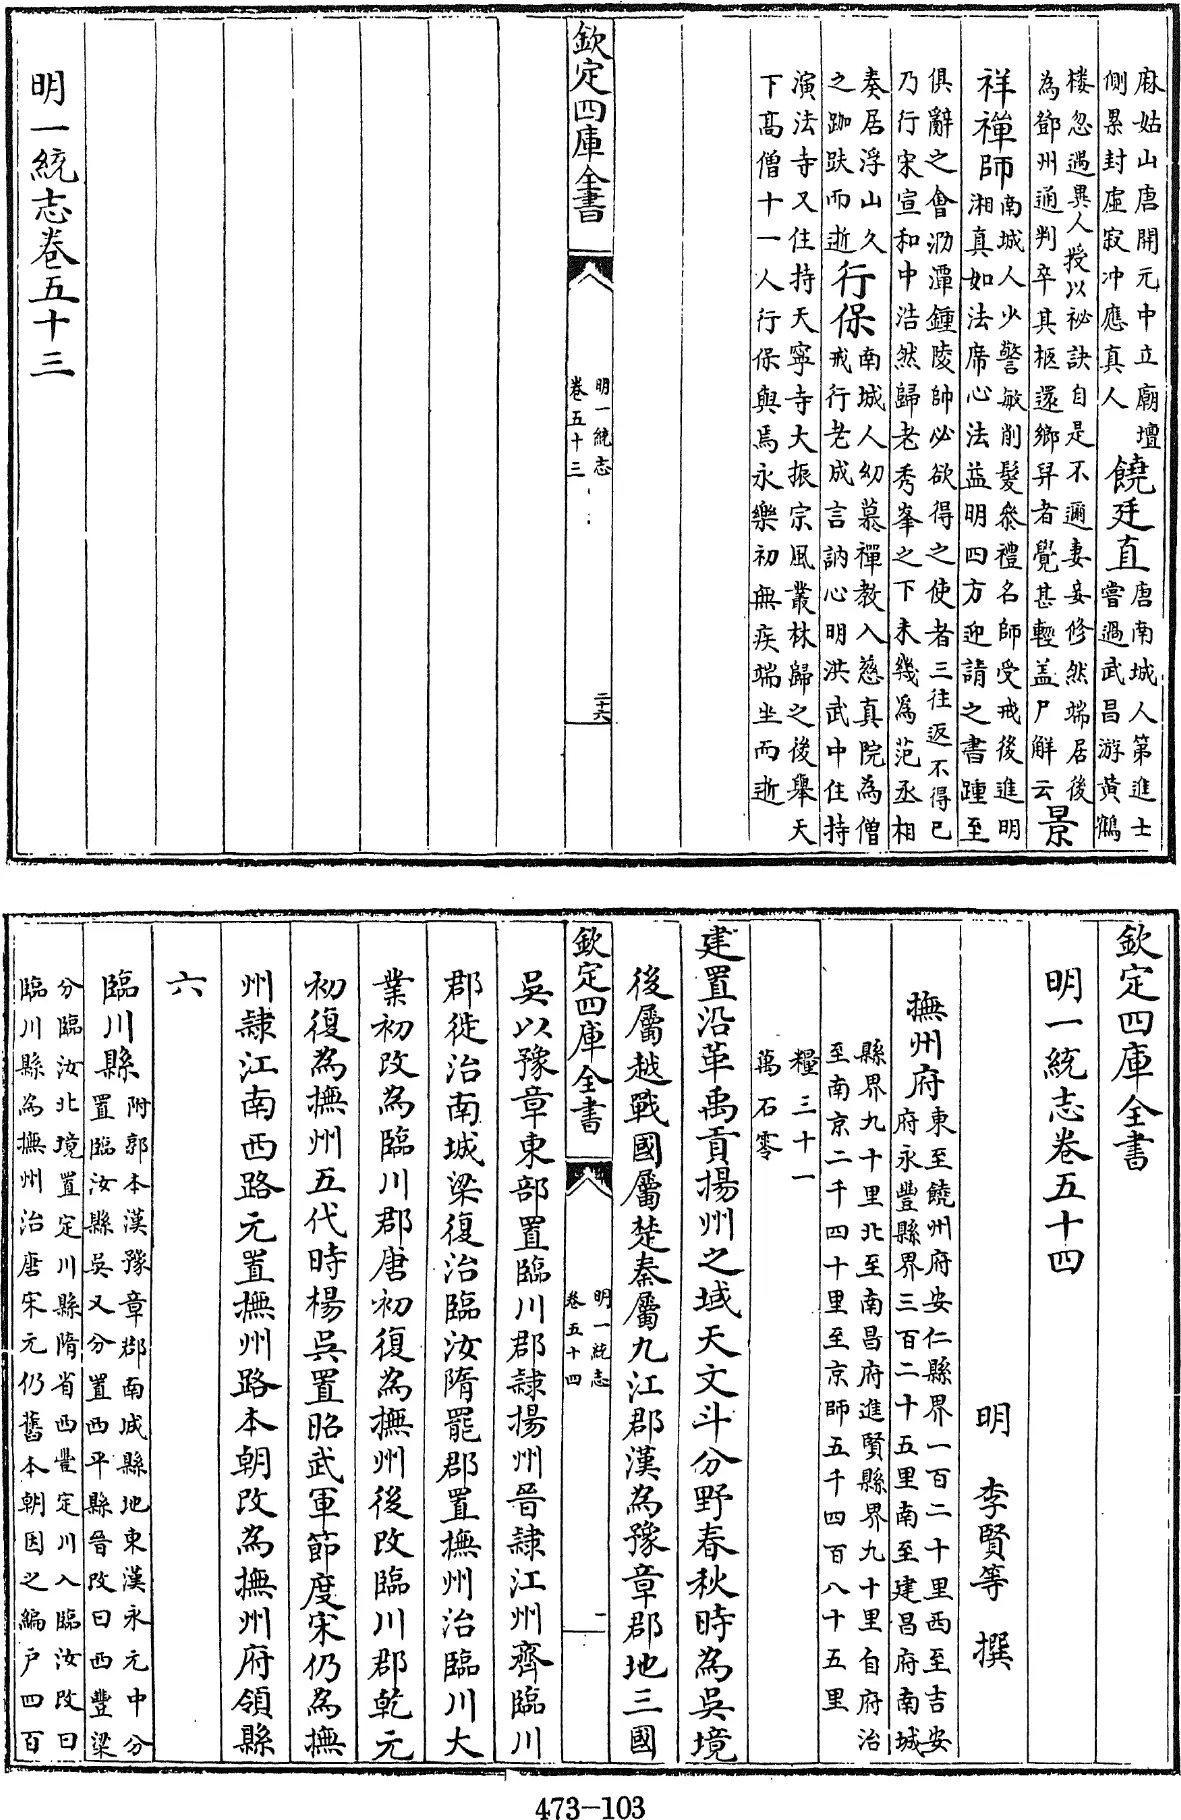 麻姑山唐開元中立廟壇側累封虛寂冲應真人饒廷直唐南城人第進士嘗過武昌游黄鶴
楼忽遇異人授以祕訣自是不邇妻妾修然端居後為鄧州通判卒其柩還鄉舁者覺甚輕盖尸解云景
祥禪師南城人少警敏削髮叅禮名師受戒後進明湘真如法席心法益明四方迎請之書踵至
俱辭之會泐潭鍾陵帥必欲得之使者三往返不得已乃行宋宣和中浩然歸老秀峯之下未幾為范丞相
奏居浮山久之跏趺而逝行保南城人幼慕禪教入慈真院為僧戒行老成言訥心明洪武中住持
演法寺又住持天寧寺大振宗風叢林歸之後舉天下髙僧十一人行保與焉永樂初無疾端坐而逝
欽定四庫全書
明一統志
卷五十三
二十六
明一統志卷五十三
欽定四庫全書
明一統志卷五十四
明 李賢等 撰
撫州府東至饒州府安仁縣界一百二十里西至吉安府永豐縣界三百二十五里南至建昌府南城
縣界九十里北至南昌府進賢縣界九十里自府治至南京二千四十里至京師五千四百八十五里
糧三十一萬石零
建置沿革禹貢揚州之域天文斗分野春秋時為吳境
後屬越戰國屬楚秦屬九江郡漢為豫章郡地三國
欽定四庫全書
明一統志
卷五十四
一
吳以豫章東部置臨川郡隷揚州晉隷江州齊臨川
郡徙治南城梁復治臨汝隋罷郡置撫州治臨川大
業初改為臨川郡唐初復為撫州後改臨川郡乾元
初復為撫州五代時楊吳置昭武軍節度宋仍為撫
州隷江南西路元置撫州路本朝改為撫州府領縣
六
臨川縣附郭本漢豫章郡南城縣地東漢永元中分置臨汝縣吳又分置西平縣晉改曰西豐梁
分臨汝北境置定川縣隋省西豐定川入臨汝改曰臨川縣為撫州治唐宋元仍舊本朝因之編户四百
473-103